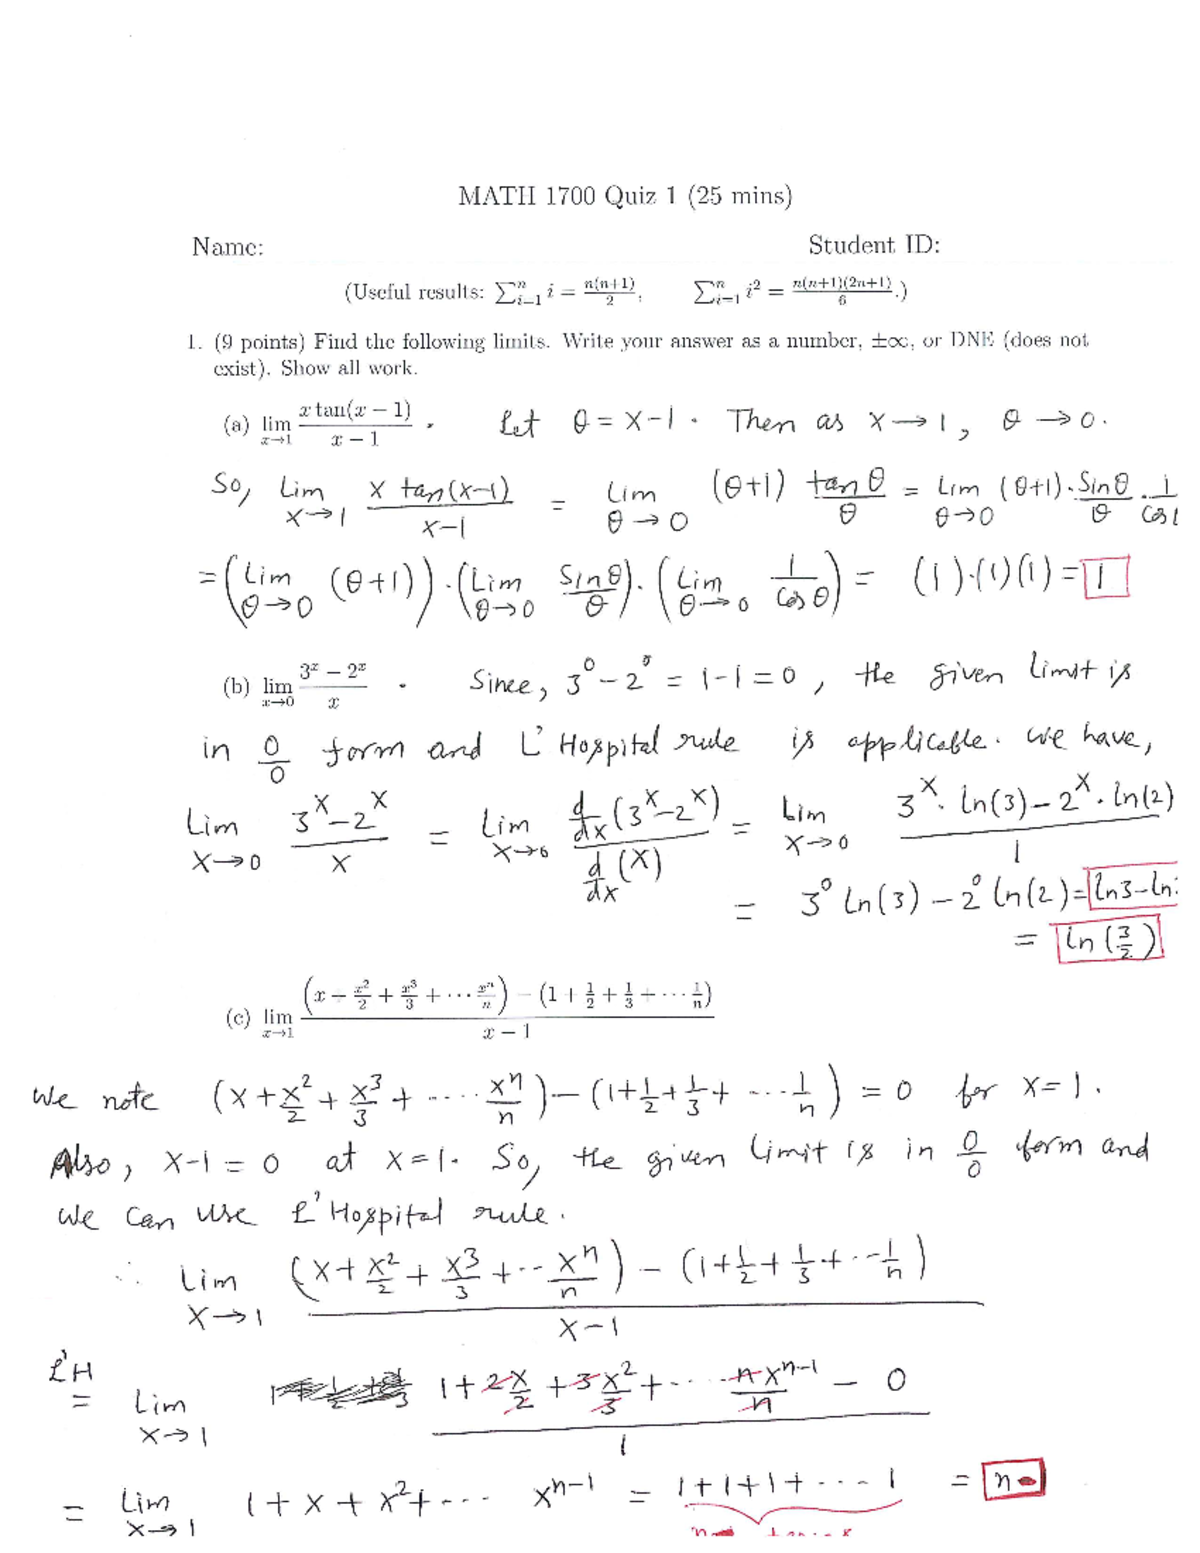 MATH 1700 Quiz 1 (25 mins)
Name: Student ID:
(Useful results: ∑ⁿᵢ₌₁ i = n(n+1)/2, ∑ⁿᵢ₌₁ i² = n(n+1)(2n+1)/6.)
1. (9 points) Find the following limits. Write your answer as a number, ±∞, or DNE (does not
exist). Show all work.
(a) lim x→1 x tan(x − 1)/(x − 1) . Let θ = x-1. Then as x→1, θ→0.
So, Lim x→1 x tan(x-1)/(x-1) = Lim θ→0 (θ+1) tan θ/θ = Lim θ→0 (θ+1)·Sinθ/θ·1/Cos
=(Lim θ→0 (θ+1))·(Lim θ→0 Sinθ/θ)·(Lim θ→0 1/Cos θ) = (1)·(1)(1) = 1
(b) lim x→0 (3ˣ − 2ˣ)/x . Since, 3⁰-2⁰ = 1-1=0, the given limit is
in 0/0 form and L'Hospital rule is applicable. We have,
Lim x→0 (3ˣ-2ˣ)/x = Lim x→0 d/dx(3ˣ-2ˣ)/d/dx(x) = Lim x→0 (3ˣ·ln(3)-2ˣ·ln(2))/1
= 3⁰ ln(3) - 2⁰ ln(2) = ln3-ln
= ln(3/2)
(c) lim x→1 ((x + x²/2 + x³/3 + ··· xⁿ/n) − (1 + 1/2 + 1/3 + ··· 1/n))/(x − 1)
We note (x+x²/2+x³/3+ ···· xⁿ/n)-(1+1/2+1/3+ ···1/n) = 0 for x=1.
Also, x-1=0 at x=1. So, the given limit is in 0/0 form and
we can use L'Hospital rule.
∴ Lim x→1 ((x+x²/2+x³/3+··xⁿ/n) - (1+1/2+1/3+··1/n))/(x-1)
L'H = Lim x→1 (1+2x/2+3x²/3+···· nxⁿ⁻¹/n - 0)/1
= Lim x→1 1+x+x²+··· xⁿ⁻¹ = 1+1+1+···1 = n